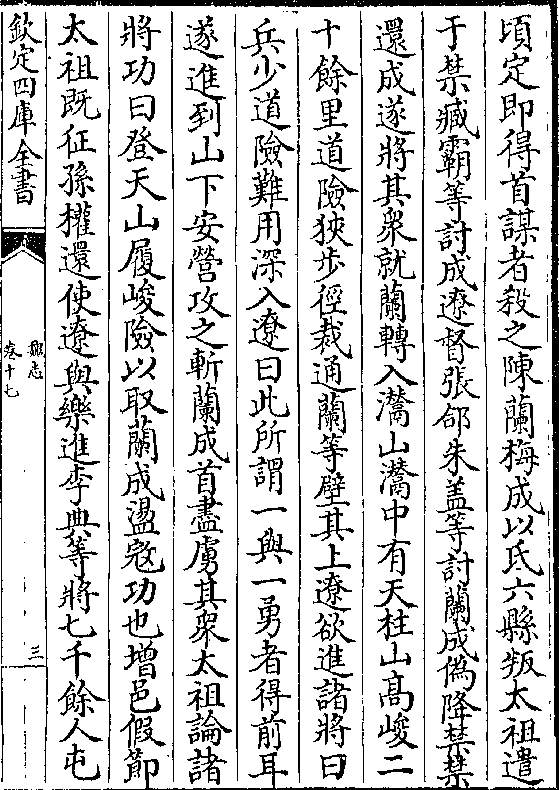 頃定即得首謀者殺之陳蘭梅成以氐六縣叛太祖遣
于禁臧霸等討成遼督張郃朱盖等討蘭成僞降禁禁
還成遂將其衆就蘭轉入灊山灊中有天柱山高峻二
十餘里道險狹步徑裁通蘭等壁其上遼欲進諸將曰
兵少道險難用深入遼曰此所謂一與一勇者得前耳
遂進到山下安營攻之斬蘭成首盡虜其衆太祖論諸
將功曰登天山履峻險以取蘭成盪宼功也增邑假節
太祖既征孫權還使遼與樂進李典等將七千餘人屯
欽定四庫全書
魏志
卷十七
三